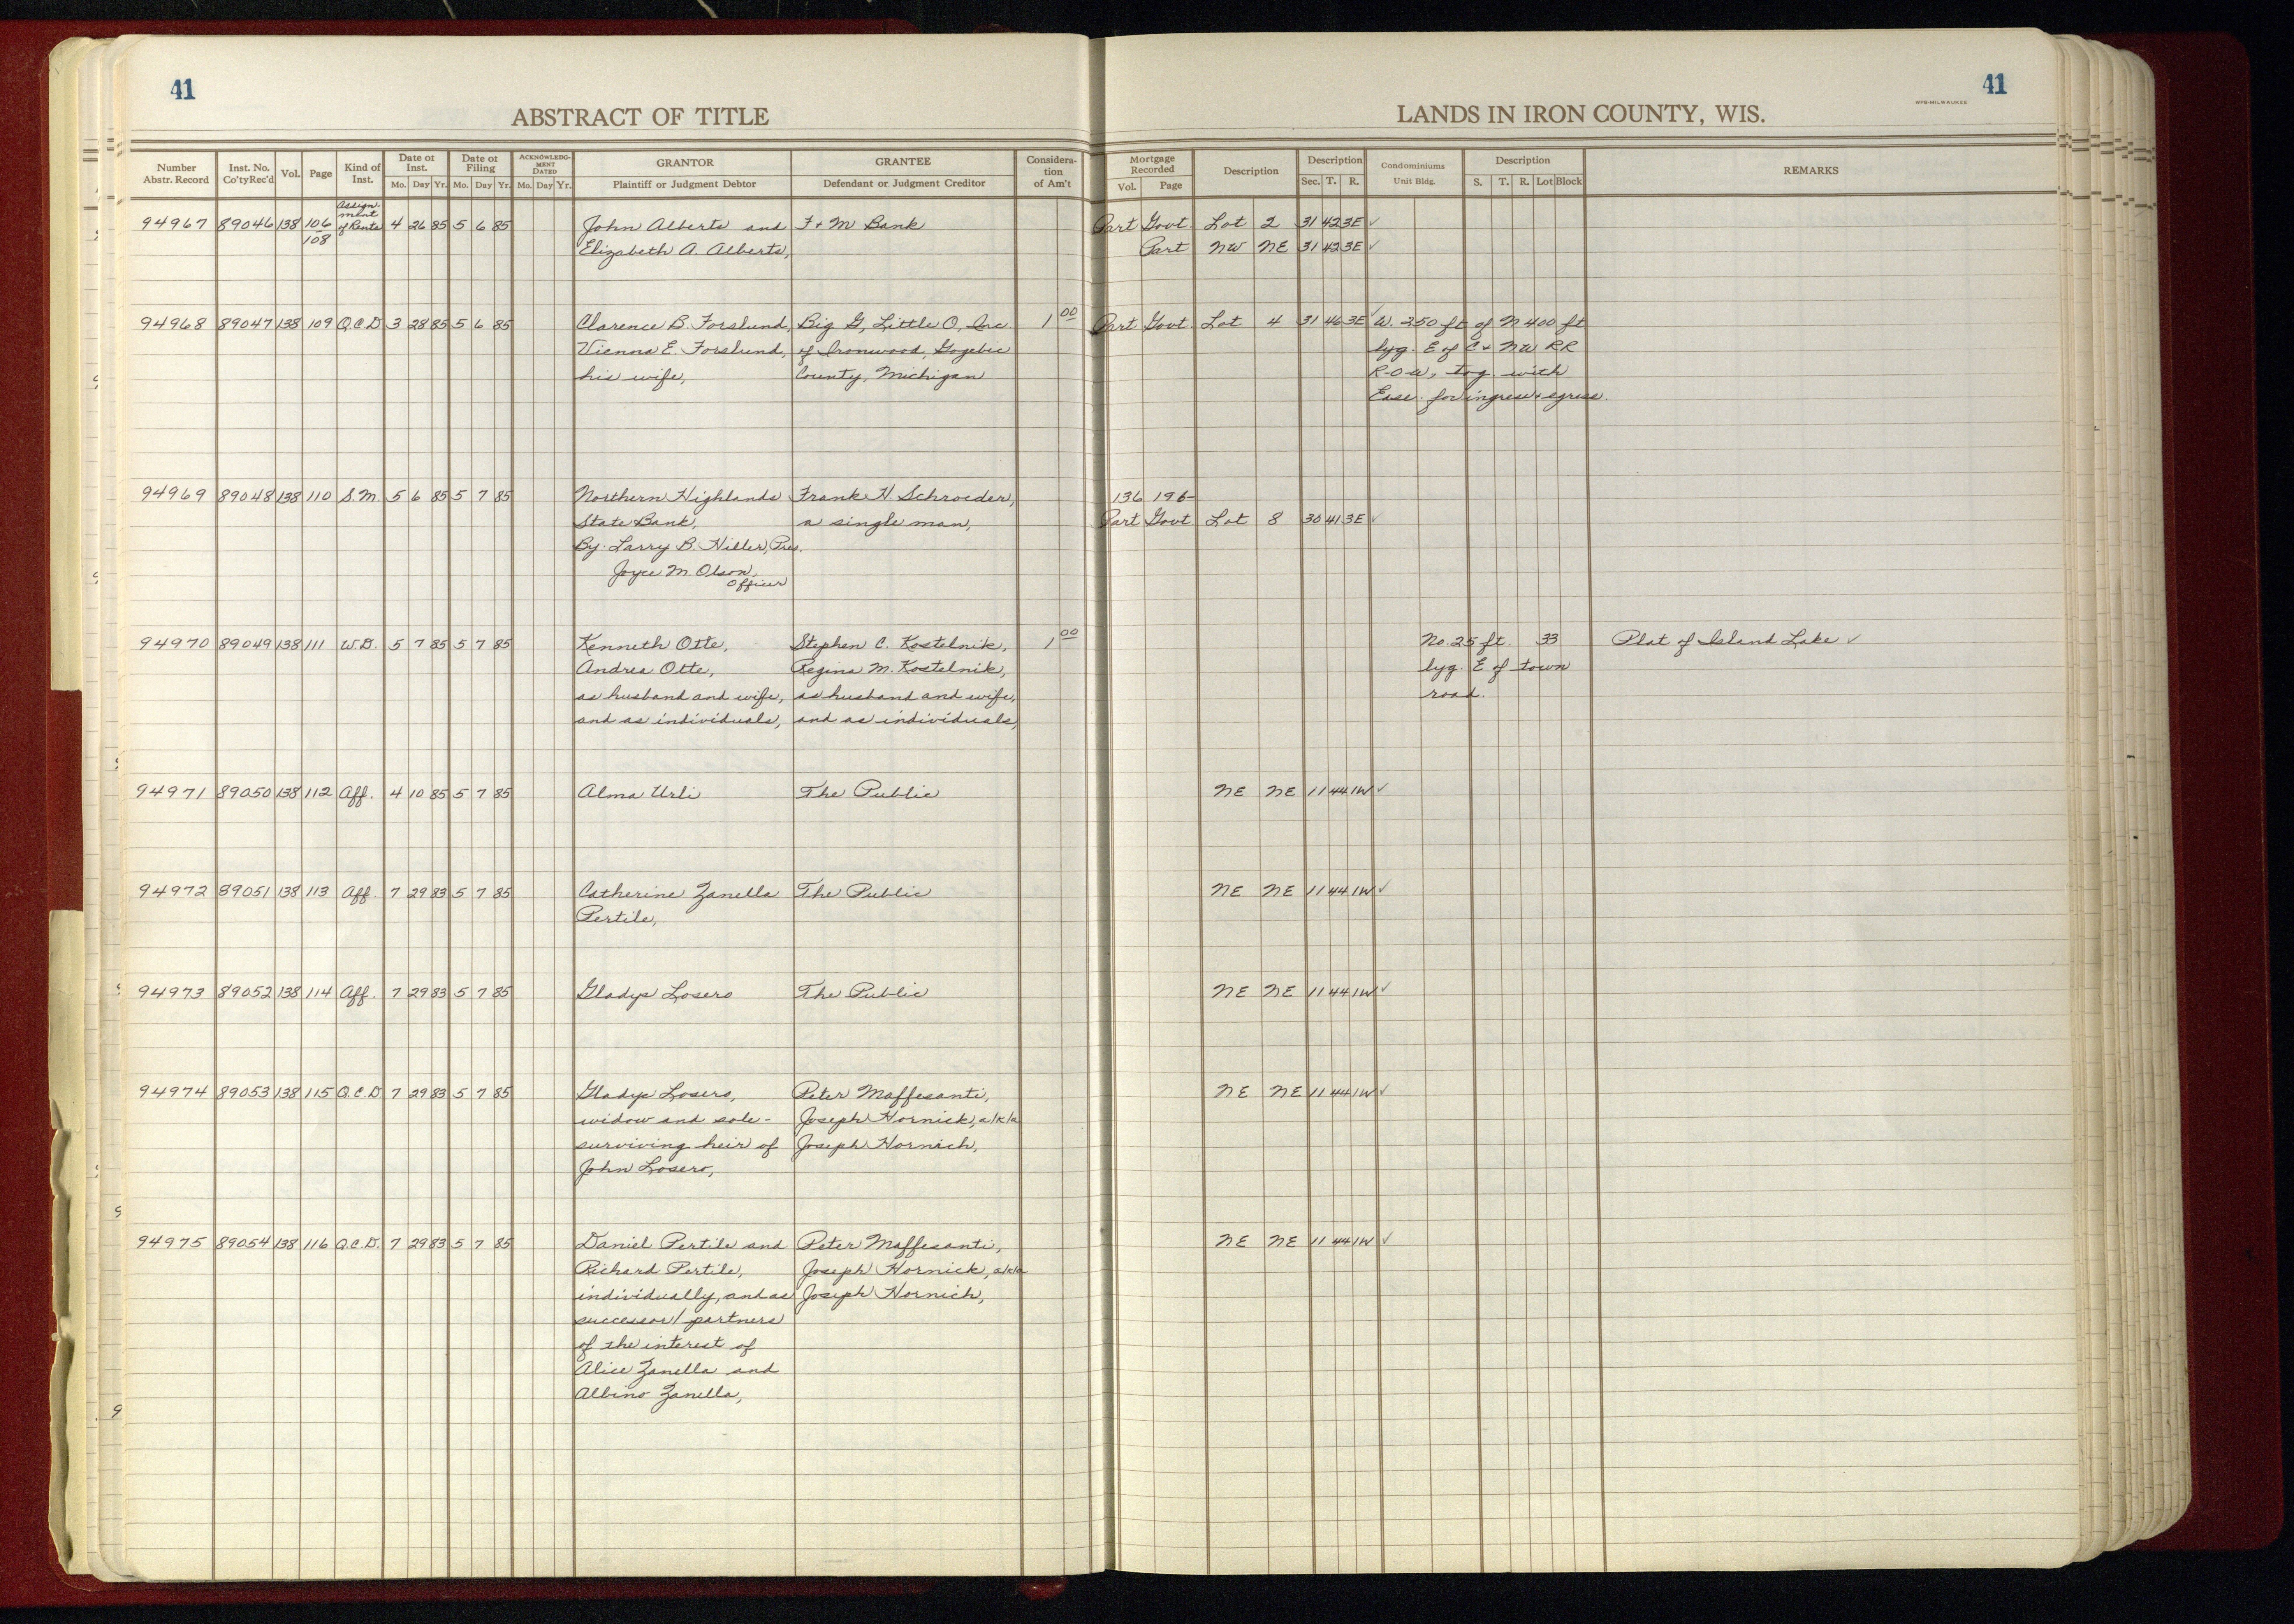 41
41
ABSTRACT OF TITLE
LANDS IN IRON COUNTY, WIS.
WPB-MILWAUKEE
Number Abstr. Record Inst. No. Co'ty Rec'd Vol. Page Kind of Inst. Date of Inst. Mo. Day Yr. Date of Filing Mo. Day Yr. ACKNOWLEDGMENT DATED Mo. Day Yr. GRANTOR Plaintiff or Judgment Debtor GRANTEE Defendant or Judgment Creditor Consideration of Am't Mortgage Recorded Vol. Page Description Description Sec. T. R. Condominiums Unit Bldg. Description S. T. R. Lot Block REMARKS
94967 89046 138 106/108 Assignment of Rents 4 26 85 5 6 85 John Alberts and F + M Bank Part Govt. Lot 2 31 42 3E ✓
Elizabeth A. Alberts, Part NW NE 31 42 3E ✓
94968 89047 138 109 Q.C.D 3 28 85 5 6 85 Clarence B. Forslund, Big G, Little O, Inc. 1 00 Part Govt. Lot 4 31 46 3E ✓ W. 250 ft of N 400 ft
Vienna E. Forslund, of Ironwood, Gogebic lyg. E of C + NW RR
his wife, County, Michigan R-O-W, tog. with
Ease. for ingress + egress.
94969 89048 138 110 S.M. 5 6 85 5 7 85 Northern Highlands Frank H. Schroeder, 136 196
State Bank, a single man, Part Govt. Lot 8 30 41 3E ✓
By: Larry B. Hiller, Pres.
Joyce M. Olson,
Officer
94970 89049 138 111 W.D. 5 7 85 5 7 85 Kenneth Otte, Stephen C. Kostelnik, 1 00 No. 25 ft. 33 Plat of Island Lake ✓
Andrea Otte, Regina M. Kostelnik, lyg. E of town
as husband and wife, as husband and wife, road.
and as individuals, and as individuals,
94971 89050 138 112 Aff. 4 10 85 5 7 85 Alma Urli The Public NE NE 11 44 1W ✓
94972 89051 138 113 Aff. 7 29 83 5 7 85 Catherine Zanella The Public NE NE 11 44 1W ✓
Pertile,
94973 89052 138 114 Aff. 7 29 83 5 7 85 Gladys Losero The Public NE NE 11 44 1W ✓
94974 89053 138 115 Q.C.D 7 29 83 5 7 85 Gladys Losero, Peter Maffesanti, NE NE 11 44 1W ✓
widow and sole- Joseph Hornick, a/k/a
surviving heir of Joseph Hornich,
John Losero,
94975 89054 138 116 Q.C.D. 7 29 83 5 7 85 Daniel Pertile and Peter Maffesanti, NE NE 11 44 1W ✓
Richard Pertile, Joseph Hornick, a/k/a
individually, and as Joseph Hornich,
successor/partners
of the interest of
Alice Zanella and
Albino Zanella,